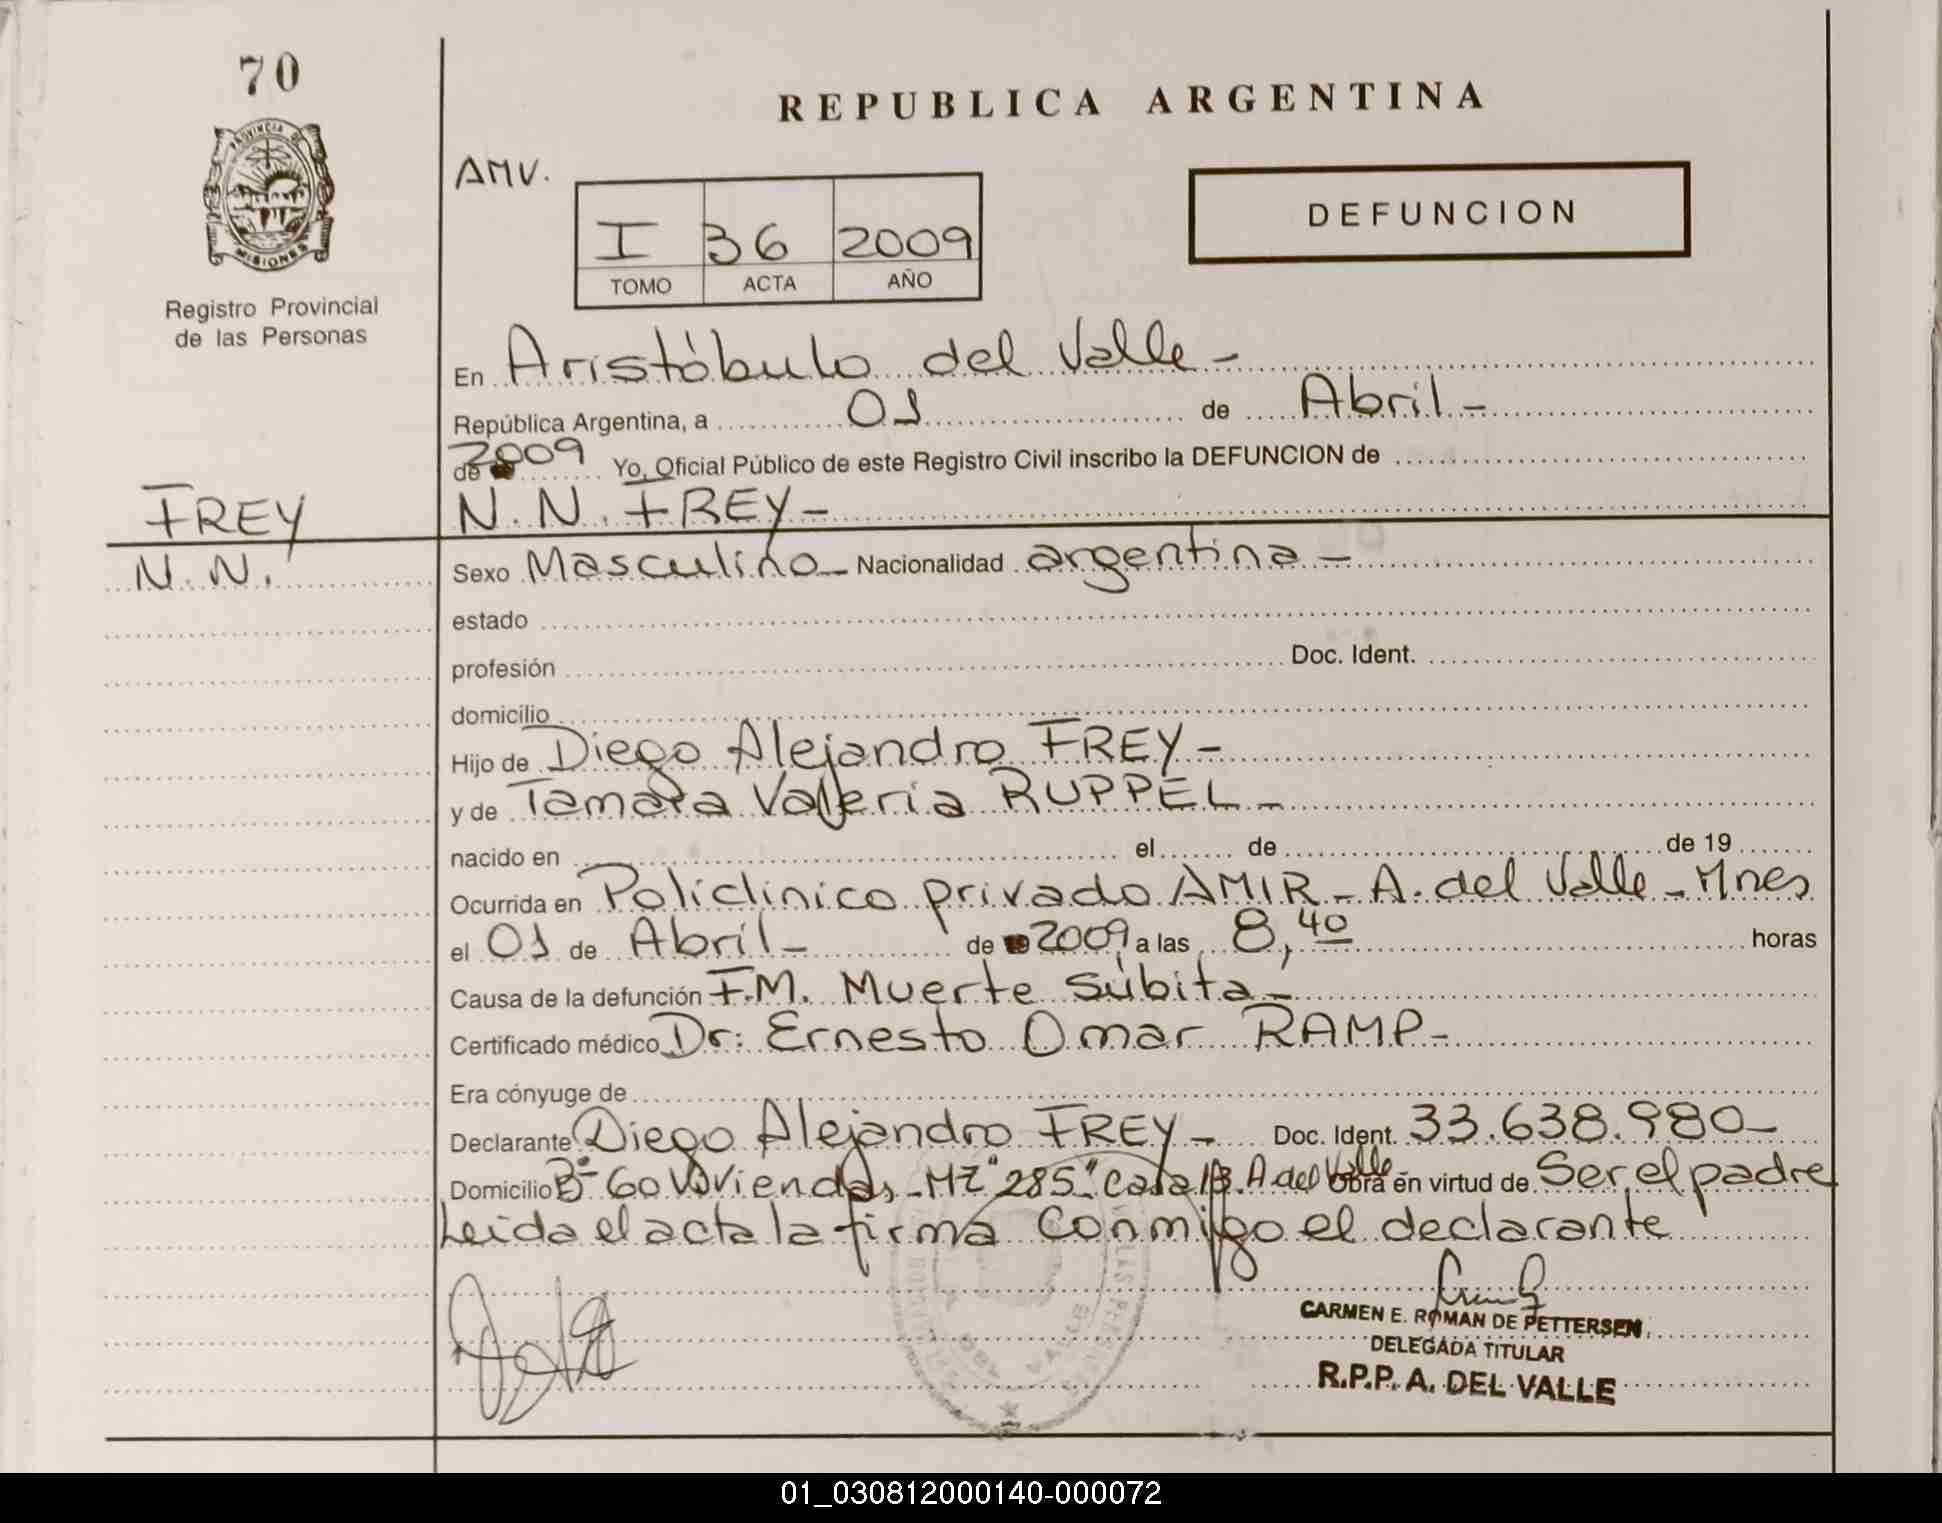 70
REPUBLICA ARGENTINA
PROVINCIA DE
MISIONES
Registro Provincial
de las Personas
AMV.
I 36 2009
TOMO ACTA AÑO
DEFUNCION
En Aristóbulo del Valle -
República Argentina, a 01 de Abril -
de 2009 Yo, Oficial Público de este Registro Civil inscribo la DEFUNCION de
FREY
N. N. FREY -
N. N.
Sexo Masculino - Nacionalidad argentina -
estado
profesión Doc. Ident.
domicilio
Hijo de Diego Alejandro FREY -
y de Tamara Valeria RUPPEL -
nacido en el de de 19
Ocurrida en Policlinico privado AMIR - A. del Valle - Mnes
el 01 de Abril - de 2009 a las 8,40 horas
Causa de la defunción F.M. Muerte Súbita -
Certificado médico Dr: Ernesto Omar RAMP -
Era cónyuge de
Declarante Diego Alejandro FREY - Doc. Ident. 33.638.980 -
Domicilio B° 60 Viviendas - Mz "285" Casa A del Valle Obra en virtud de Ser el padre
Leida el acta la firma conmigo el declarante
CARMEN E. ROMAN DE PETTERSEN
DELEGADA TITULAR
R.P.P. A. DEL VALLE
01_030812000140-000072